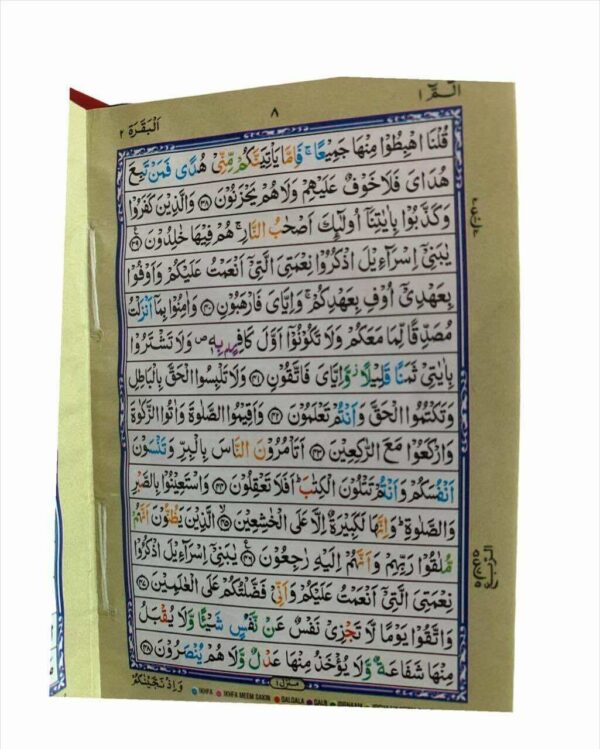 الٓمّٓ ١
٨
اَلْبَقَرَة ٢
قُلْنَا اهْبِطُوْا مِنْهَا جَمِيْعًا ۚ فَاِمَّا يَاْتِيَنَّكُمْ مِّنِّىْ هُدًى فَمَنْ تَبِعَ
هُدَاىَ فَلَا خَوْفٌ عَلَيْهِمْ وَلَا هُمْ يَحْزَنُوْنَ ﴿۳۸﴾ وَالَّذِيْنَ كَفَرُوْا
وَكَذَّبُوْا بِاٰيٰتِنَآ اُولٰٓئِكَ اَصْحٰبُ النَّارِ ۚ هُمْ فِيْهَا خٰلِدُوْنَ ﴿۳۹﴾
يٰبَنِىْٓ اِسْرَآءِيْلَ اذْكُرُوْا نِعْمَتِىَ الَّتِىْٓ اَنْعَمْتُ عَلَيْكُمْ وَاَوْفُوْا
بِعَهْدِىْٓ اُوْفِ بِعَهْدِكُمْ ۚ وَاِيَّاىَ فَارْهَبُوْنِ ﴿۴۰﴾ وَاٰمِنُوْا بِمَآ اَنْزَلْتُ
مُصَدِّقًا لِّمَا مَعَكُمْ وَلَا تَكُوْنُوْٓا اَوَّلَ كَافِرٍۢ بِهٖ ۖ وَلَا تَشْتَرُوْا
بِاٰيٰتِىْ ثَمَنًا قَلِيْلًا ۡ وَّاِيَّاىَ فَاتَّقُوْنِ ﴿۴۱﴾ وَلَا تَلْبِسُوا الْحَقَّ بِالْبَاطِلِ
وَتَكْتُمُوا الْحَقَّ وَاَنْتُمْ تَعْلَمُوْنَ ﴿۴۲﴾ وَاَقِيْمُوا الصَّلٰوةَ وَاٰتُوا الزَّكٰوةَ
وَارْكَعُوْا مَعَ الرّٰكِعِيْنَ ﴿۴۳﴾ اَتَاْمُرُوْنَ النَّاسَ بِالْبِرِّ وَتَنْسَوْنَ
اَنْفُسَكُمْ وَاَنْتُمْ تَتْلُوْنَ الْكِتٰبَ ؕ اَفَلَا تَعْقِلُوْنَ ﴿۴۴﴾ وَاسْتَعِيْنُوْا بِالصَّبْرِ
وَالصَّلٰوةِ ؕ وَاِنَّهَا لَكَبِيْرَةٌ اِلَّا عَلَى الْخٰشِعِيْنَ ﴿۴۵﴾ الَّذِيْنَ يَظُنُّوْنَ اَنَّهُمْ
مُّلٰقُوْا رَبِّهِمْ وَاَنَّهُمْ اِلَيْهِ رٰجِعُوْنَ ﴿۴۶﴾ يٰبَنِىْٓ اِسْرَآءِيْلَ اذْكُرُوْا
نِعْمَتِىَ الَّتِىْٓ اَنْعَمْتُ عَلَيْكُمْ وَاَنِّىْ فَضَّلْتُكُمْ عَلَى الْعٰلَمِيْنَ ﴿۴۷﴾
وَاتَّقُوْا يَوْمًا لَّا تَجْزِىْ نَفْسٌ عَنْ نَّفْسٍ شَيْئًا وَّلَا يُقْبَلُ
مِنْهَا شَفَاعَةٌ وَّلَا يُؤْخَذُ مِنْهَا عَدْلٌ وَّلَا هُمْ يُنْصَرُوْنَ ﴿۴۸﴾
منزل ١
وَاِذْ نَجَّيْنٰكُمْ
IKHFA IKHFA MEEM SAKIN QALQALA QALB